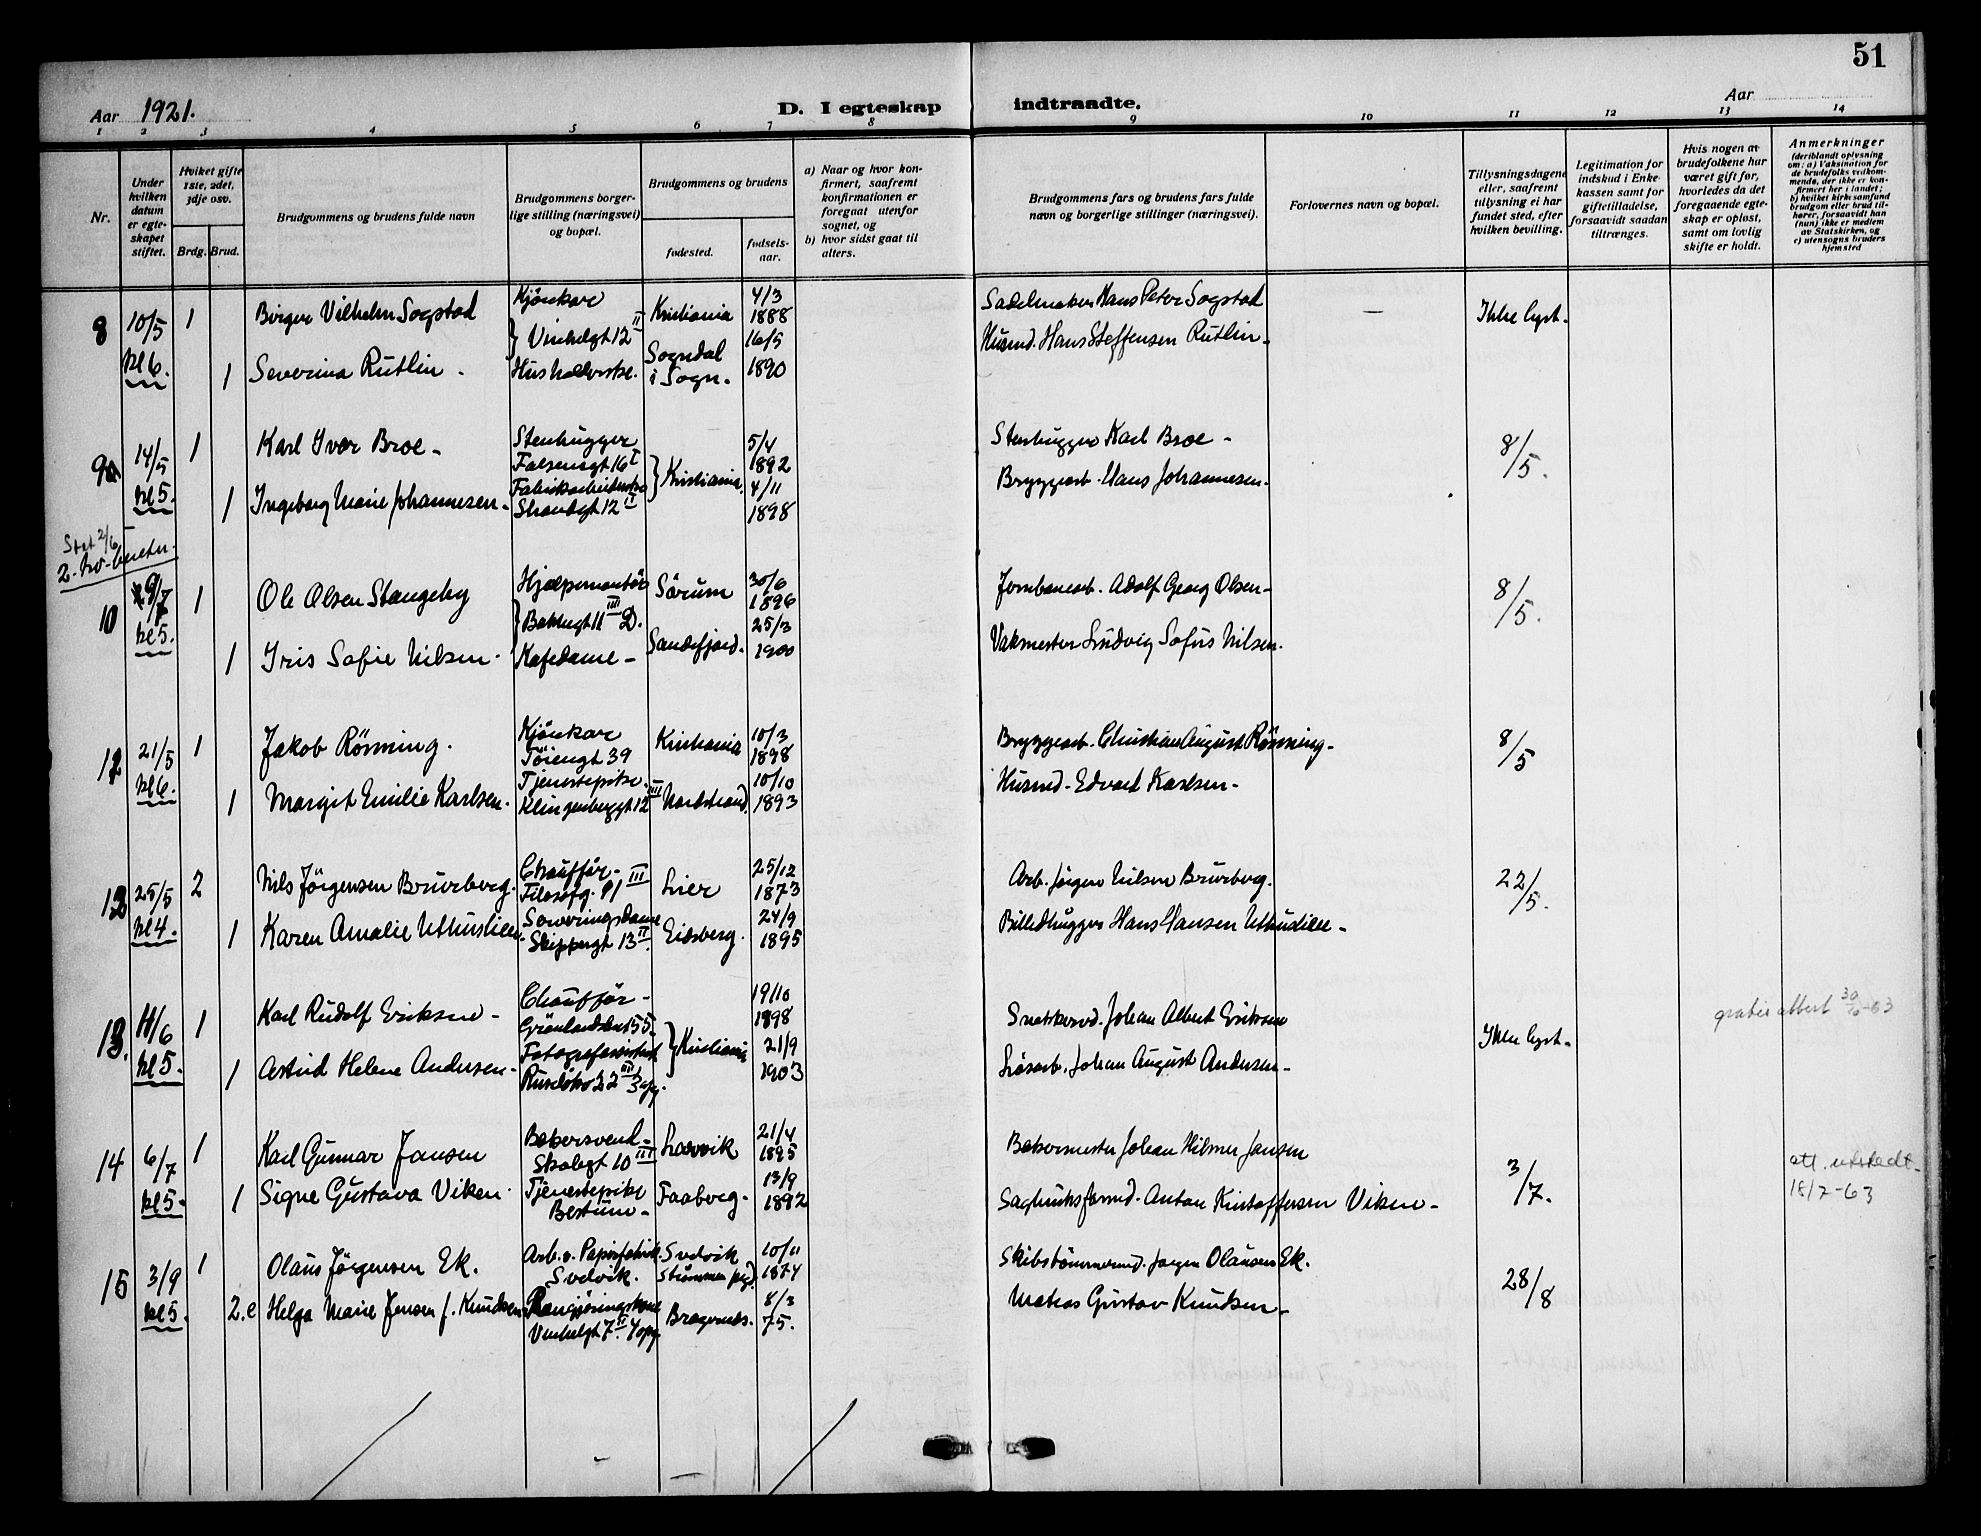 51
Aar 1921.
D. I egteskap indtraadte.
Aar
1 2 3 4 5 6 7 8 9 10 11 12 13 14
Nr.
Under hvilken datum er egte-skapet stiftet.
Hvilket gifte 1ste, 2det, 3dje osv.
Brdg. Brud.
Brudgommens og brudens fulde navn
Brudgommens borger-lige stilling (næringsvei) og bopæl.
Brudgommens og brudens
fødested.
fødsels-aar.
a) Naar og hvor kon-firmert, saafremt konfirmationen er foregaat utenfor sognet, og
b) hvor sidst gaat til alters.
Brudgommens fars og brudens fars fulde navn og borgerlige stillinger (næringsvei).
Forlovernes navn og bopæl.
Tillysningsdagene eller, saafremt tillysning ei har fundet sted, efter hvilken bevilling.
Legitimation for indskud i Enke-kassen samt for giftetilladelse, forsaavidt saadan tiltrænges.
Hvis nogen av brudefolkene har været gift før, hvorledes da det foregaaende egte-skap er opløst, samt om lovlig skifte er holdt.
Anmerkninger (deriblandt oplysning om: a) Vaksination for de brudefolks vedkom-mende, der ikke er kon-firmert her i landet; b) hvilket kirkesamfund brudgom eller brud til-hører, forsaavidt han (hun) ikke er medlem av Statskirken, og c) utensogns bruders hjemsted
8 10/5 kl 6. 1 Birger Vilhelm Sogstad Kjørekar Kristiania 4/3 1888 Sadelmaker Hans Peter Sogstad — Ikke lyst.
} Vinkelgt 12 II
1 Severina Rutlin. Husholderske. Sogndal i Sogn. 16/5 1890 Husmd. Hans Steffensen Rutlin.
9 14/5 kl 5. 1 Karl Ivar Broe Stenhugger Falsensgt 16 I } Kristiania. 5/4 1892 Stenhugger Karl Broe 8/5.
1 Ingeborg Marie Johannesen. Fabrikarbeiderske Strandgt 12 II 4/11 1898 Bryggearb. Hans Johannesen.
Stat 2/6
10 29/7 kl 5. 1 Ole Olsen Stangeby Hjælpemontør Sørum 30/6 1896 Jernbanearb. Adolf Georg Olsen 8/5.
} Bakkegt 11 III D.
1 Iris Sofie Nilsen. Kafedame Sandefjord. 25/3 1900 Vaktmester Ludvig Sofus Nilsen.
12 21/5 kl 6. 1 Jakob Rönning. Kjørekar Töiengt 39 Kristiania 10/3 1898 Bryggearb. Christian August Rönning 8/5
1 Margit Emilie Karlsen. Tjenestepike. Klingenberggt 12 III Nordstrand. 10/10 1893 Husmd. Edvard Karlsen
13 25/5 kl 4. 2 Nils Jörgensen Brurberg. Chauffør Filosofg. 91 III Lier 25/12 1873 Arb. Jörgen Nilsen Brurberg. 22/5.
1 Karen Amalie Uthuslien Serveringsdame Skippergt 13 II. Eidsberg. 24/9 1895 Billedhugger Hans Hansen
13. 11/6 kl 5. 1 Karl Rudolf Eriksen Chauffør Grønlandsleret 55. } Kristiania 19/10 1898 Snekkersv. Johan Albert Eriksen Ikke lyst. gratis attest 30/6-63
1 Astrid Helene Andersen Fotografassistent Ruseløkv 22 III 3 opg. 21/9 1903 Løsarb. Johan August Andersen
14 6/7 kl 5. 1 Karl Gunnar Jansen Bakersvend Skolegt 10 III Larvik 21/4 1895 Bakermester Johan Hilmer Jansen 3/7. att. utstedt 18/7-63
1 Signe Gustava Viken. Tjenestepike Bestum Faaberg. 13/9 1892 Sagbruksformd. Anton Kristoffersen Viken
15 3/9 kl 5. 1 Olaus Jörgensen Ek. Arb. v. Papirfabrik. Svelvik. Svelvik Strømmen pgd. 10/11 1874 Skibstömmermd. Jørgen Olausen Ek. 28/8
2.e Helga Marie Jensen f. Knudsen Rengjøringskone Vinkelgt 7 II 4 opg. Bragernes. 8/3 75. Matias Gustav Knudsen